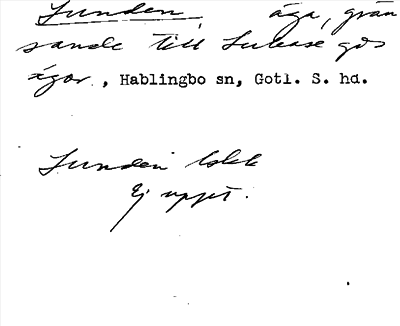 Lunden, äga, grän
sande till Lukase gds
ägor., Hablingbo sn, Gotl. S. hd.
Lunden
Ej uppt.